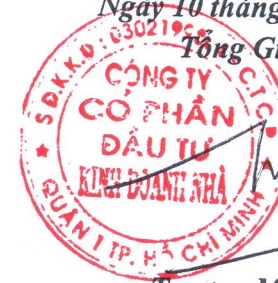 Ngày 10 tháng
Tổng Gi
S.Đ.K.K.D:030219
C.T.C
CÔNG TY
CỔ PHẦN
ĐẦU TƯ
KINH DOANH NHÀ
QUẬN 1 TP. HỒ CHÍ MINH